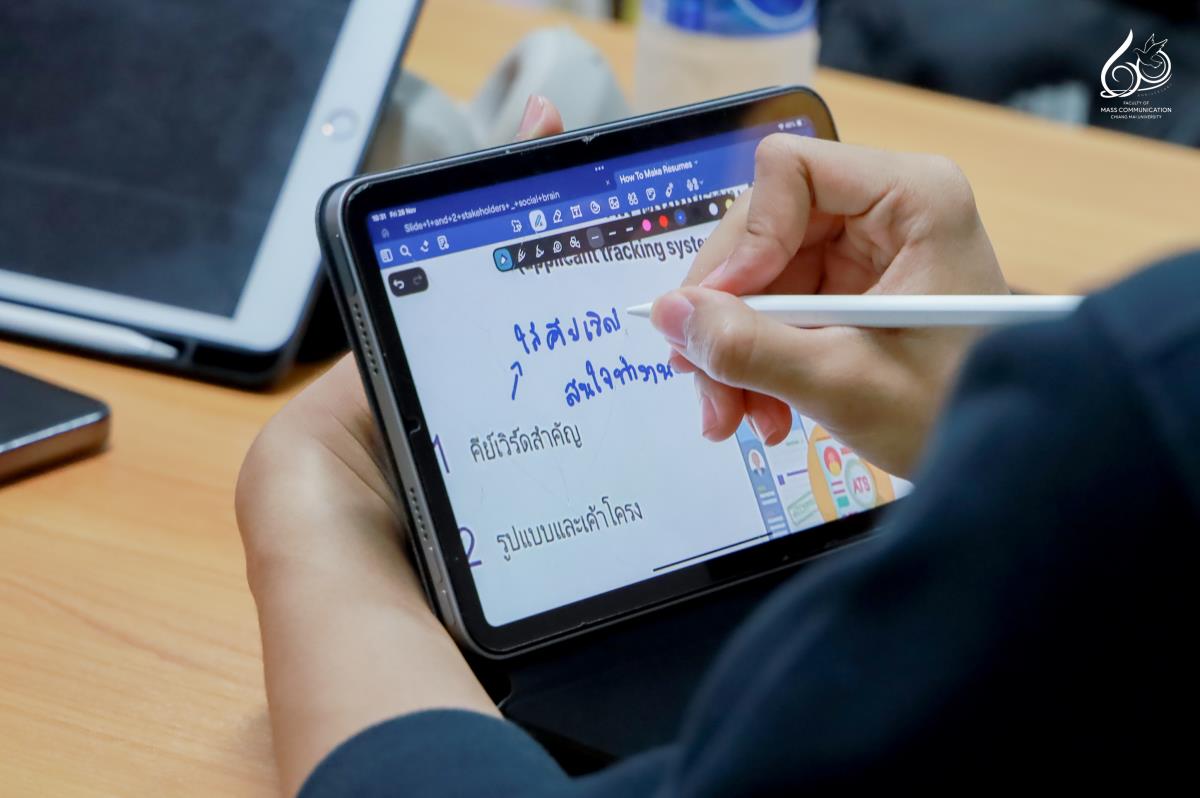 FACULTY OF
MASS COMMUNICATION
CHIANG MAI UNIVERSITY
10:31 Fri 28 Nov
Slide+1+and+2+stakeholders+_+social+brain
How To Make Resumes
(applicant tracking system
ใส่คีย์เวิด
สนใจทำงาน
1 คีย์เวิร์ดสำคัญ
2 รูปแบบและเค้าโครง
ATS